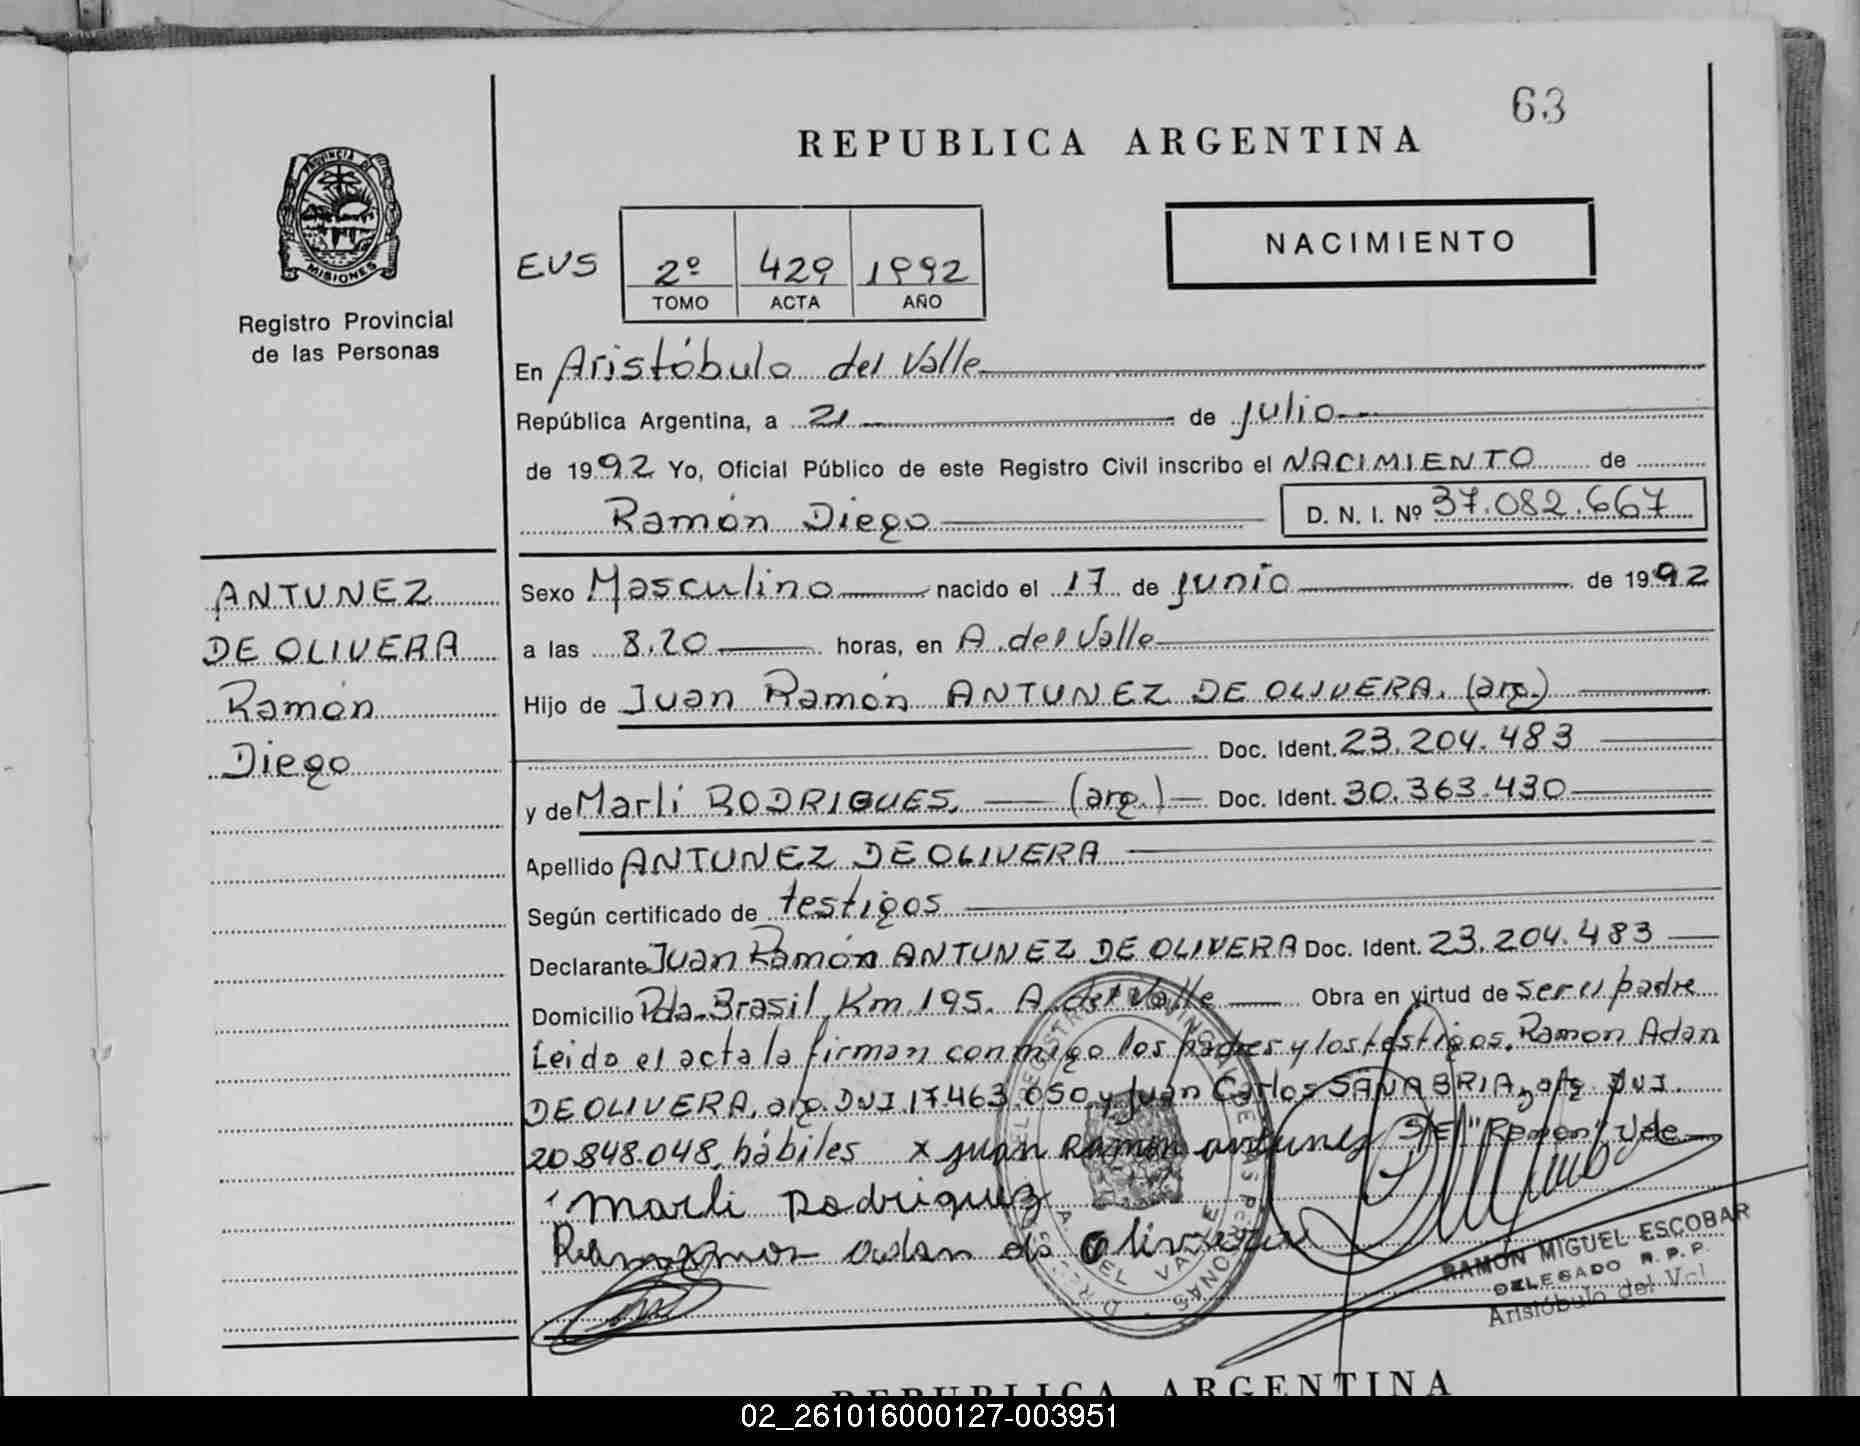 63
REPUBLICA ARGENTINA
PROVINCIA DE
MISIONES
Registro Provincial
de las Personas
EUS
2º 429 1992
TOMO ACTA AÑO
NACIMIENTO
En Aristóbulo del Valle
República Argentina, a 21 de julio
de 1992 Yo, Oficial Público de este Registro Civil inscribo el NACIMIENTO de
Ramón Diego D. N. I. Nº 37.082.667
ANTUNEZ
DE OLIVERA
Ramón
Diego
Sexo Masculino nacido el 17 de junio de 1992
a las 8.20 horas, en A. del Valle
Hijo de Juan Ramón ANTUNEZ DE OLIVERA. (arg.)
Doc. Ident. 23.204.483
y de Marli RODRIGUES. (arg.) Doc. Ident. 30.363.430
Apellido ANTUNEZ DE OLIVERA
Según certificado de testigos
Declarante Juan Ramón ANTUNEZ DE OLIVERA Doc. Ident. 23.204.483
Domicilio Pda. Brasil, Km. 195. A. del Valle Obra en virtud de ser el padre
Leido el acta la firman conmigo los padres y los testigos. Ramon Adan
DE OLIVERA, arg. DNI. 17.463.050 y Juan Carlos SANABRIA, arg. DNI.
20.848.048, hábiles x juan Ramon antunez S/E/ "Ramon" Vde
Marli Rodriguez
adan de olivera
REGISTRO PROVINCIAL DE LAS PERSONAS
A. DEL VALLE
RAMON MIGUEL ESCOBAR
DELEGADO R. P. P.
Aristóbulo del Val
REPUBLICA ARGENTINA
02_261016000127-003951